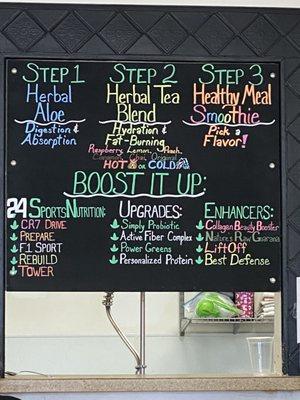 STEP 1
Herbal
Aloe
Digestion &
Absorption
STEP 2
Herbal Tea
Blend
Hydration &
Fat-Burning
Raspberry, Lemon, Peach,
Cinnamon, Chai, Original
HOT OR COLD
STEP 3
Healthy Meal
Smoothie
Pick a
Flavor!
BOOST IT UP:
24 SPORTS NUTRITION:
CR7 DRIVE
PREPARE
F1 SPORT
REBUILD
TOWER
UPGRADES:
Simply Probiotic
Active Fiber Complex
Power Greens
Personalized Protein
ENHANCERS:
Collagen Beauty Booster
Nature's Raw Guarana
LiftOff
Best Defense